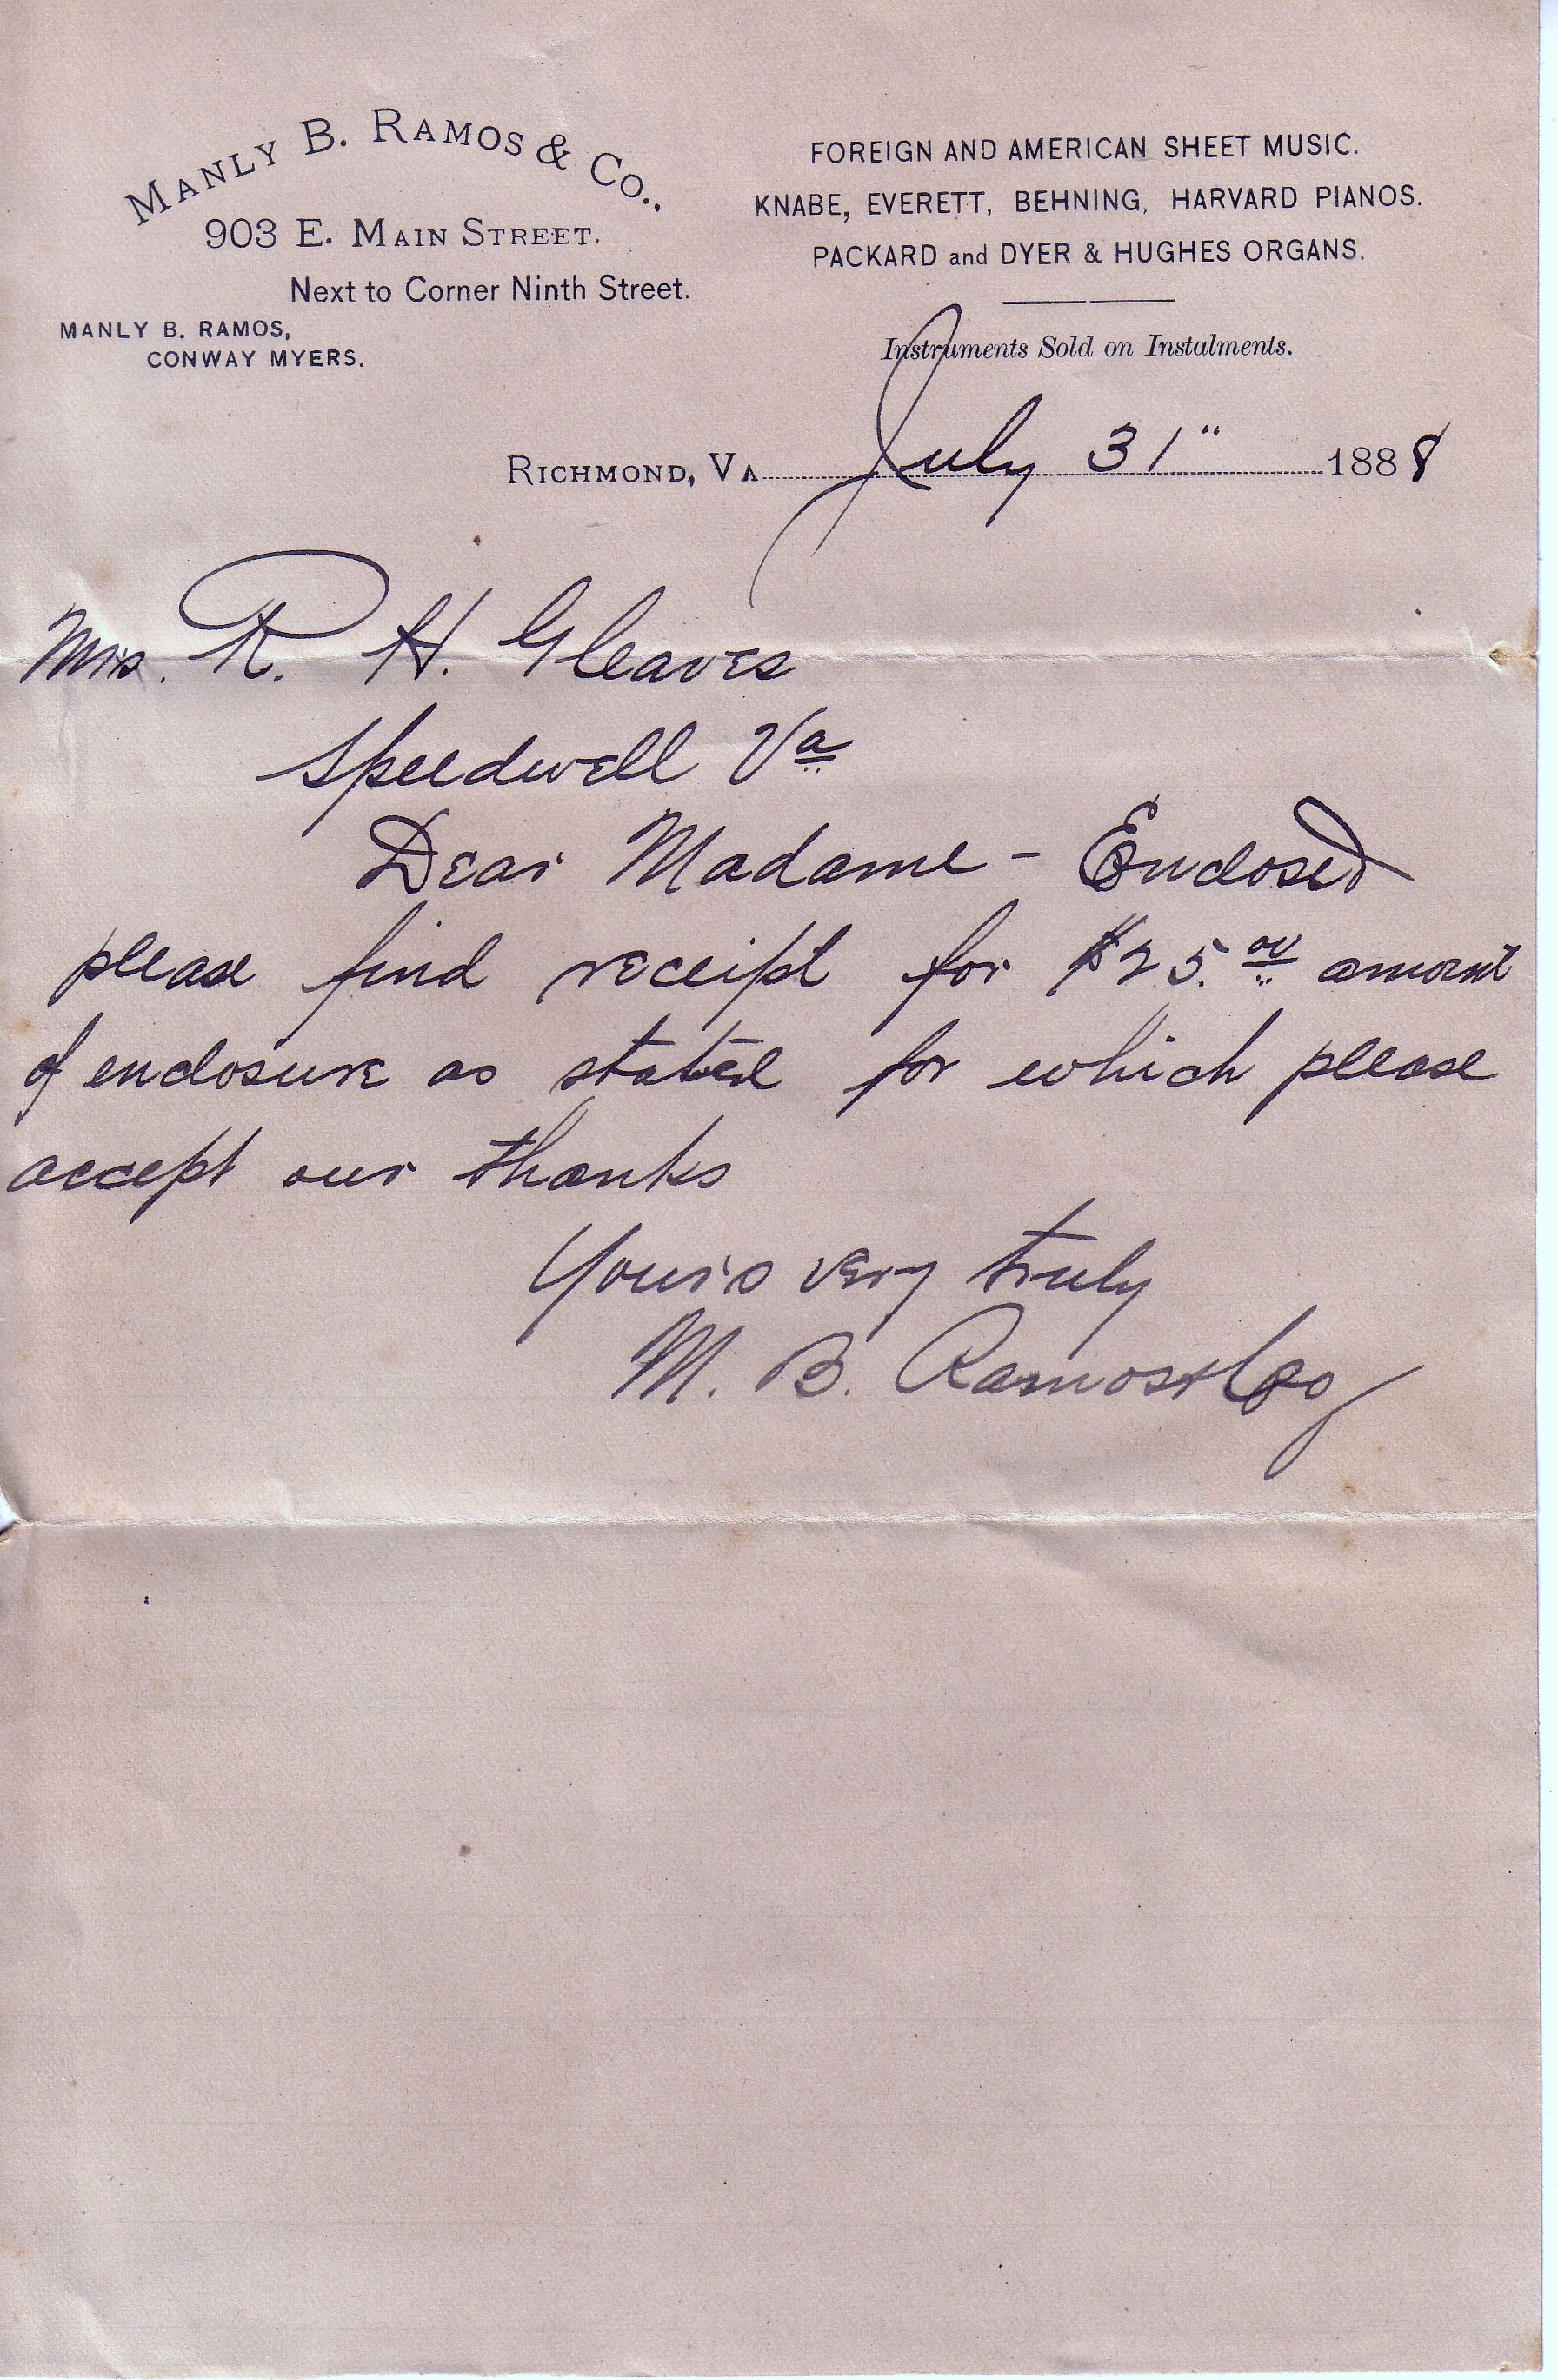 MANLY B. RAMOS & CO.,
903 E. MAIN STREET.
Next to Corner Ninth Street.
MANLY B. RAMOS,
CONWAY MYERS.
FOREIGN AND AMERICAN SHEET MUSIC.
KNABE, EVERETT, BEHNING, HARVARD PIANOS.
PACKARD and DYER & HUGHES ORGANS.
Instruments Sold on Instalments.
RICHMOND, VA July 31" 1888
Mrs. R. H. Gleaves
Speedwell Va
Dear Madame - Enclosed
please find receipt for $25.00 amount
of enclosure as stated for which please
accept our thanks
Yours very truly
M. B. Ramos & Co